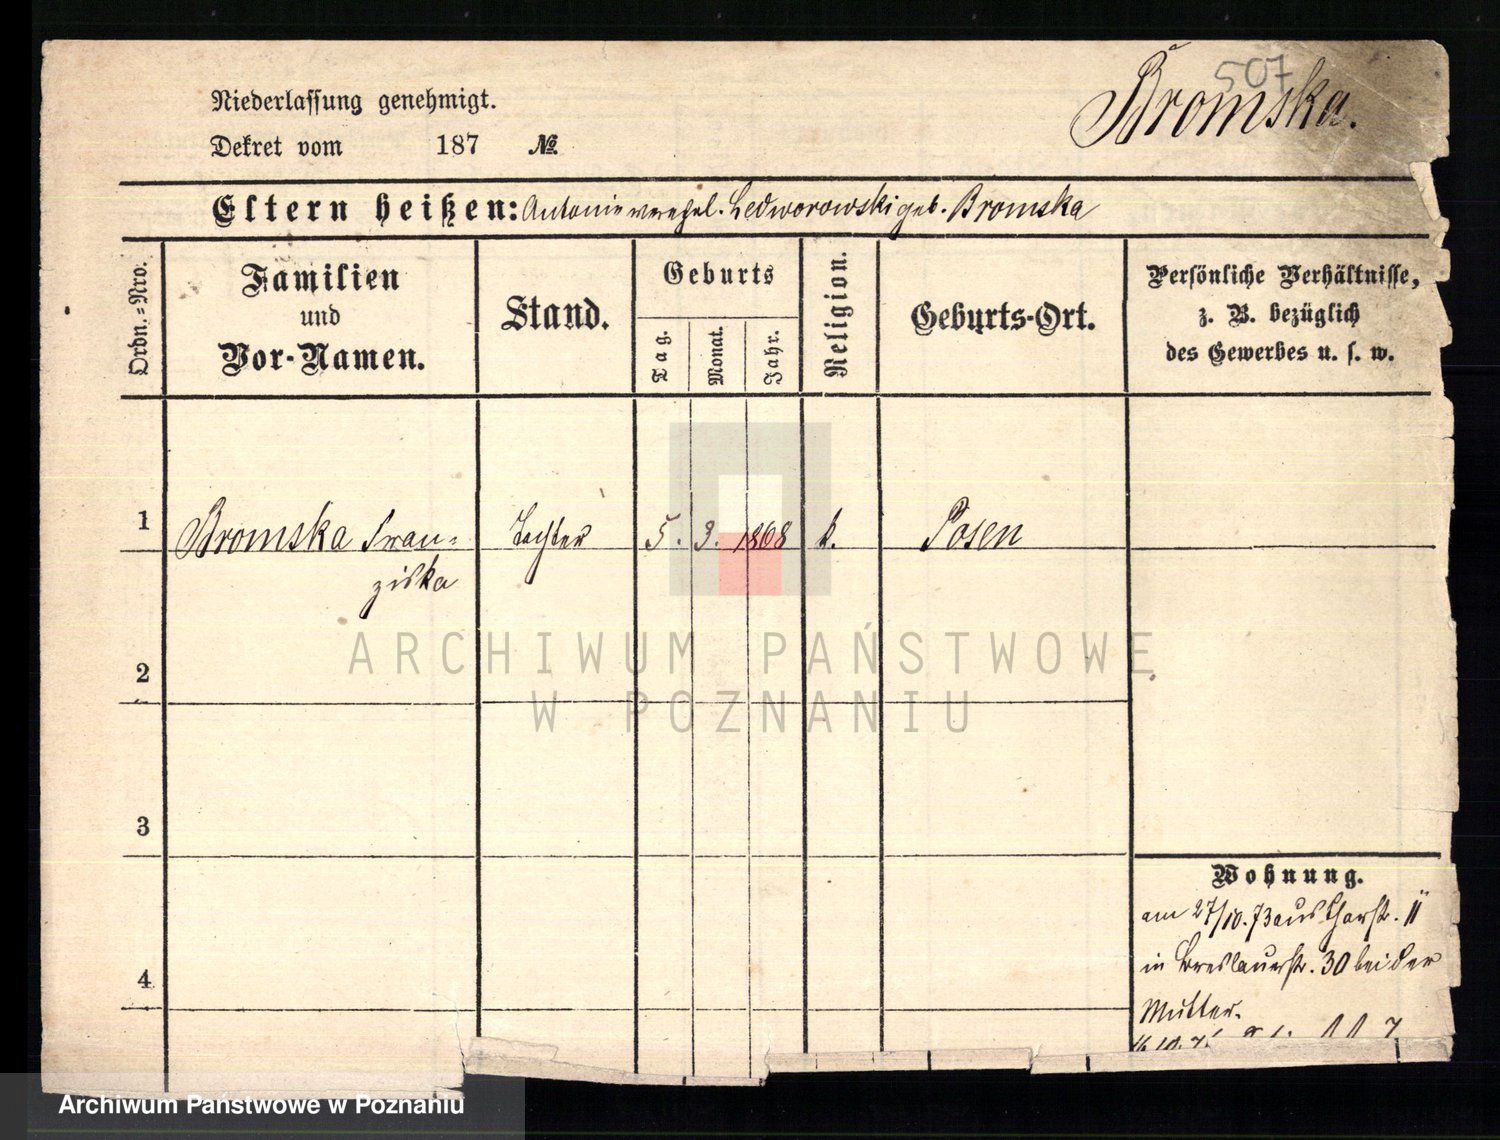 507
Bromska.
Niederlassung genehmigt.
Dekret vom 187 №.
Eltern heißen: Antonie verehel. Ledworowski geb. Bromska
Ordn.-Nro.
Familien
und
Vor-Namen.
Stand.
Geburts
Tag.
Monat.
Jahr.
Religion.
Geburts-Ort.
Persönliche Verhältnisse,
z. B. bezüglich
des Gewerbes u. s. w.
1 Bromska Fran- Tochter 5. 3. 1868 k. Posen
ziska
2
3
4
Wohnung.
am 27/10.73 aus Thorstr. 11
in Breslauerstr. 30 bei der
Mutter.
ARCHIWUM PAŃSTWOWE
W POZNANIU
Archiwum Państwowe w Poznaniu